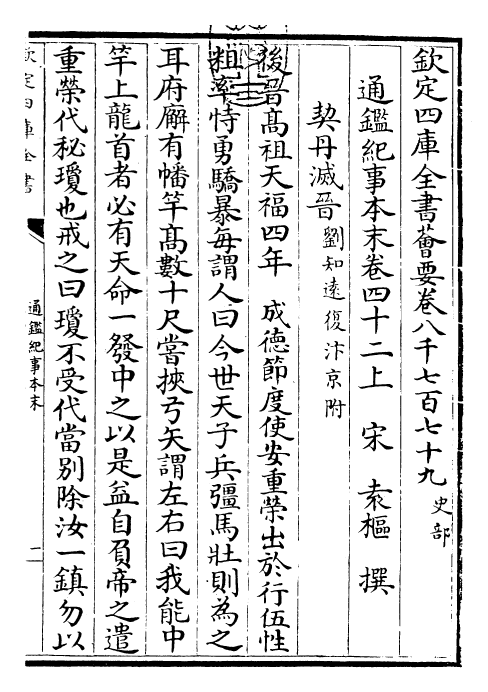 欽定四庫全書薈要卷八千七百七十九 史部
通鑑紀事本末卷四十二上 宋 袁樞 撰
契丹滅晉 劉知遠復汴京附
後晉髙祖天福四年 成德節度使安重榮出於行伍性
粗率恃勇驕暴每謂人曰今世天子兵彊馬壯則為之
耳府廨有幡竿髙數十尺嘗挾弓矢謂左右曰我能中
竿上龍首者必有天命一發中之以是益自負帝之遣
重榮代秘瓊也戒之曰瓊不受代當別除汝一鎮勿以
欽定四庫全書
通鑑紀事本末
二